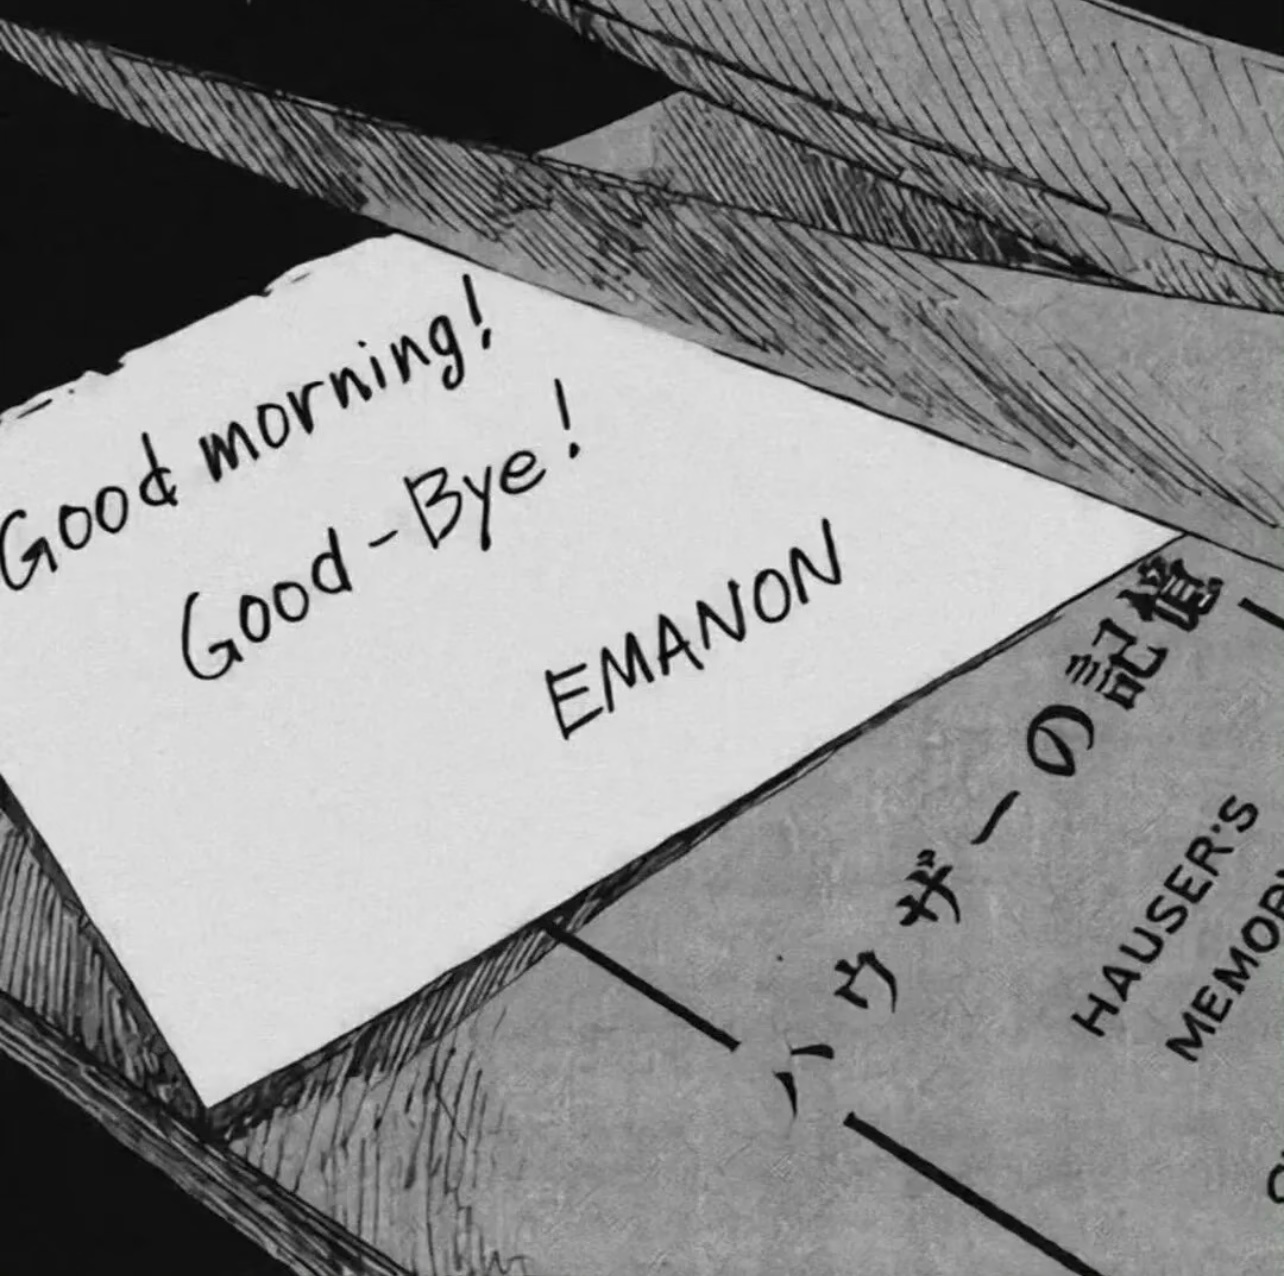 Good morning!
Good-Bye!
EMANON
ハウザーの記憶
HAUSER'S
MEMORY